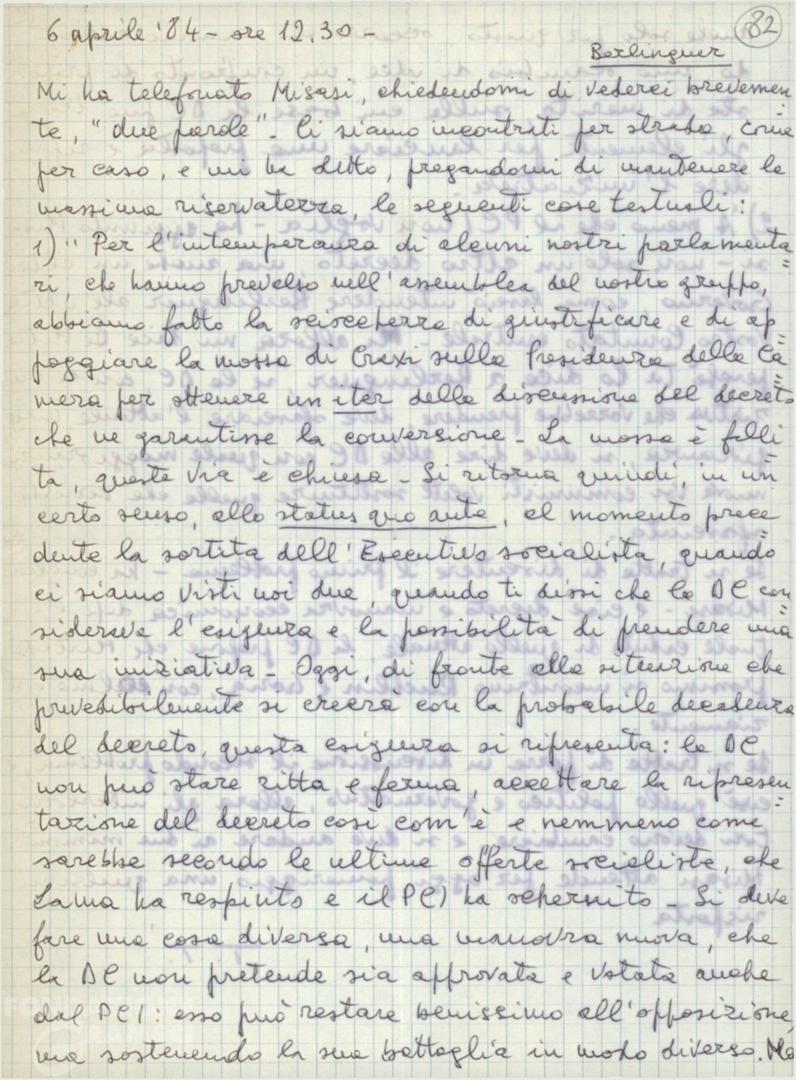 82
6 aprile '84 - ore 12.30 -
Berlinguer
Mi ha telefonato Misasi, chiedendomi di vederci brevemen
te, "due parole". Ci siamo incontrati per strada, come
per caso, e mi ha detto, pregandomi di mantenere la
massima riservatezza, le seguenti cose testuali:
1) "Per l'intemperanza di alcuni nostri parlamenta=
ri, che hanno prevalso nell'assemblea del nostro gruppo,
abbiamo fatto la sciocchezza di giustificare e di ap=
poggiare la mossa di Craxi sulla Presidenza della Ca=
mera per ottenere un iter della discussione del decreto
che ne garantisse la conversione - La mossa è falli=
ta, questa via è chiusa - Si ritorna quindi, in un
certo senso, allo status quo ante, al momento prece=
dente la sortita dell'Esecutivo socialista, quando
ci siamo visti noi due, quando ti dissi che la DC con=
siderava l'esigenza e la possibilità di prendere una
sua iniziativa - Oggi, di fronte alla situazione che
prevedibilmente si creerà con la probabile decadenza
del decreto, questa esigenza si ripresenta: la DC
non può stare zitta e ferma, accettare la ripresen=
tazione del decreto così com'è e nemmeno come
sarebbe secondo le ultime offerte socialiste, che
Lama ha respinto e il PCI ha schernito - Si deve
fare una cosa diversa, una manovra nuova, che
la DC non pretende sia approvata e votata anche
dal PCI: esso può restare benissimo all'opposizione,
ma sostenendo la sua battaglia in modo diverso. Ma